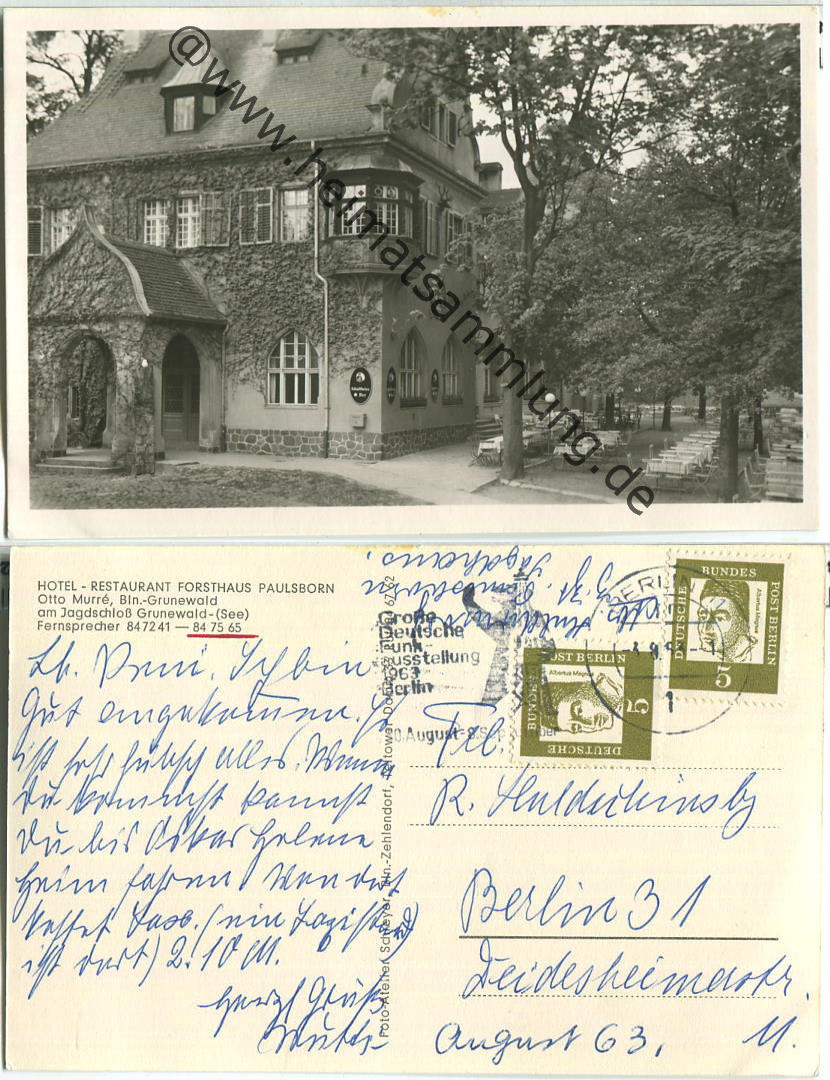 @www.heimatsammlung.de
Schultheiss
Bier
HOTEL - RESTAURANT FORSTHAUS PAULSBORN
Otto Murré, Bln.-Grunewald
am Jagdschloß Grunewald-(See)
Fernsprecher 847241 — 84 75 65
Gut angekommen. Es
ist sehr hübsch alles. Wenn
Du kommst kannst
Du bis Oskar Helene
Heim fahren. Von dort
kostet Taxe. (ein Taxistand
ist dort) 2.10 M.
Herzl Grüße
Mutti
Foto-Atelier Schleyer, Bln.-Zehlendorf, Teltower Damm
Jagdhaus.
Große
Deutsche
Funk-
Ausstellung
1963
Berlin
30. August - 8. September
BERLIN
1
DEUTSCHE BUNDESPOST BERLIN
Albertus Magnus
5
DEUTSCHE BUNDESPOST BERLIN
Albertus Magnus
5
R.
Berlin 31
Deidesheimerstr.
11.
August 63.